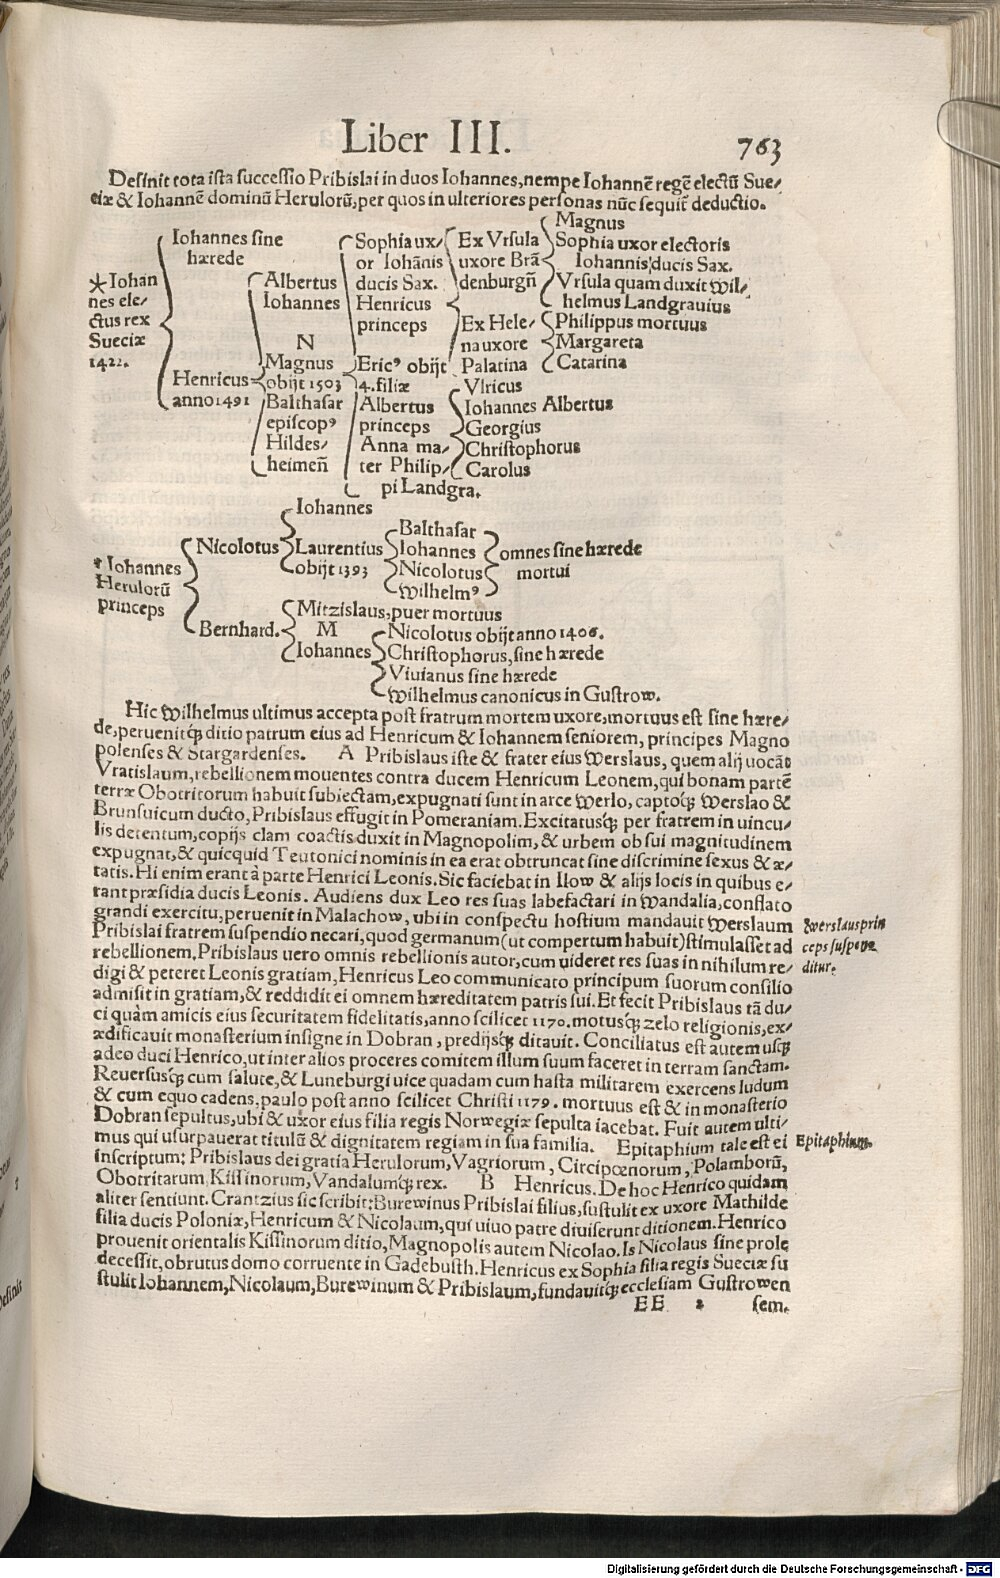 Liber III. 763
Desinit tota ista successio Pribislai in duos Iohannes, nempe Iohannē regē electū Sue/
ciæ & Iohannē dominū Herulorū, per quos in ulteriores personas nūc sequit̄ deductio.
*Iohan
nes ele/
ctus rex
Sueciæ
1422.
Iohannes sine
hærede
Henricus
anno 1491
Albertus
Iohannes
N
Magnus
obijt 1503
Balthasar
episcopꝰ
Hildes/
heimen̄
Sophia ux/
or Iohānis
ducis Sax.
Henricus
princeps
Ericꝰ obijt
4. filiæ
Albertus
princeps
Anna ma/
ter Philip/
pi Landgra.
Ex Vrsula
uxore Brā
denburgn̄
Ex Hele/
na uxore
Palatina
Magnus
Sophia uxor electoris
Iohannis ducis Sax.
Vrsula quam duxit Wil/
helmus Landgrauius
Philippus mortuus
Margareta
Catarina
Vlricus
Iohannes Albertus
Georgius
Christophorus
Carolus
* Iohannes
Herulorū
princeps
Nicolotus
Bernhard.
Iohannes
Laurentius
obijt 1393
Balthasar
Iohannes
Nicolotus
Wilhelmꝰ
omnes sine hærede
mortui
Mitzislaus, puer mortuus
M
Iohannes
Nicolotus obijt anno 1406.
Christophorus, sine hærede
Viuianus sine hærede
Wilhelmus canonicus in Gustrow.
Hic Wilhelmus ultimus accepta post fratrum mortem uxore, mortuus est sine hære/
de, peruenitq̃ ditio patrum eius ad Henricum & Iohannem seniorem, principes Magno
polenses & Stargardenses. A Pribislaus iste & frater eius Werslaus, quem alij uocāt
Vratislaum, rebellionem mouentes contra ducem Henricum Leonem, qui bonam partē
terræ Obotritorum habuit subiectam, expugnati sunt in arce Werlo, captoq̃ Werslao &
Brunsuicum ducto, Pribislaus effugit in Pomeraniam. Excitatusq̃ per fratrem in uincu/
lis detentum, copijs clam coactis duxit in Magnopolim, & urbem ob sui magnitudinem
expugnat, & quicquid Teutonici nominis in ea erat obtruncat sine discrimine sexus & æ/
tatis. Hi enim erant à parte Henrici Leonis. Sic faciebat in Ilow & alijs locis in quibus e/
rant præsidia ducis Leonis. Audiens dux Leo res suas labefactari in Wandalia, conflato
grandi exercitu, peruenit in Malachow, ubi in conspectu hostium mandauit Werslaum
Pribislai fratrem suspendio necari, quod germanum (ut compertum habuit) stimulasset ad
rebellionem. Pribislaus uero omnis rebellionis autor, cum uideret res suas in nihilum re/
digi & peteret Leonis gratiam, Henricus Leo communicato principum suorum consilio
admisit in gratiam, & reddidit ei omnem hæreditatem patris sui. Et fecit Pribislaus tā du/
ci quàm amicis eius securitatem fidelitatis, anno scilicet 1170. motusq̃ zelo religionis, ex/
ædificauit monasterium insigne in Dobran, predijsq̃ ditauit. Conciliatus est autem usq̃
adeo duci Henrico, ut inter alios proceres comitem illum suum faceret in terram sanctam.
Reuersusq̃ cum salute, & Luneburgi uice quadam cum hasta militarem exercens ludum
& cum equo cadens, paulo post anno scilicet Christi 1179. mortuus est & in monasterio
Dobran sepultus, ubi & uxor eius filia regis Norwegiæ sepulta iacebat. Fuit autem ulti/
mus qui usurpauerat titulū & dignitatem regiam in sua familia. Epitaphium tale est ei
inscriptum: Pribislaus dei gratia Herulorum, Vagriorum, Circipœnorum, Polamborū,
Obotritarum, Kissinorum, Vandalumq̃ rex. B Henricus. De hoc Henrico quidam
aliter sentiunt. Crantzius sic scribit: Burewinus Pribislai filius, sustulit ex uxore Mathilde
filia ducis Poloniæ, Henricum & Nicolaum, qui uiuo patre diuiserunt ditionem. Henrico
prouenit orientalis Kissinorum ditio, Magnopolis autem Nicolao. Is Nicolaus sine prole
decessit, obrutus domo corruente in Gadebusth. Henricus ex Sophia filia regis Sueciæ su
stulit Iohannem, Nicolaum, Burewinum & Pribislaum, fundauitq̃ ecclesiam Gustrowen
EE 2 sem.
Werslaus prin
ceps suspen
ditur.
Epitaphium.
Digitalisierung gefördert durch die Deutsche Forschungsgemeinschaft - DFG